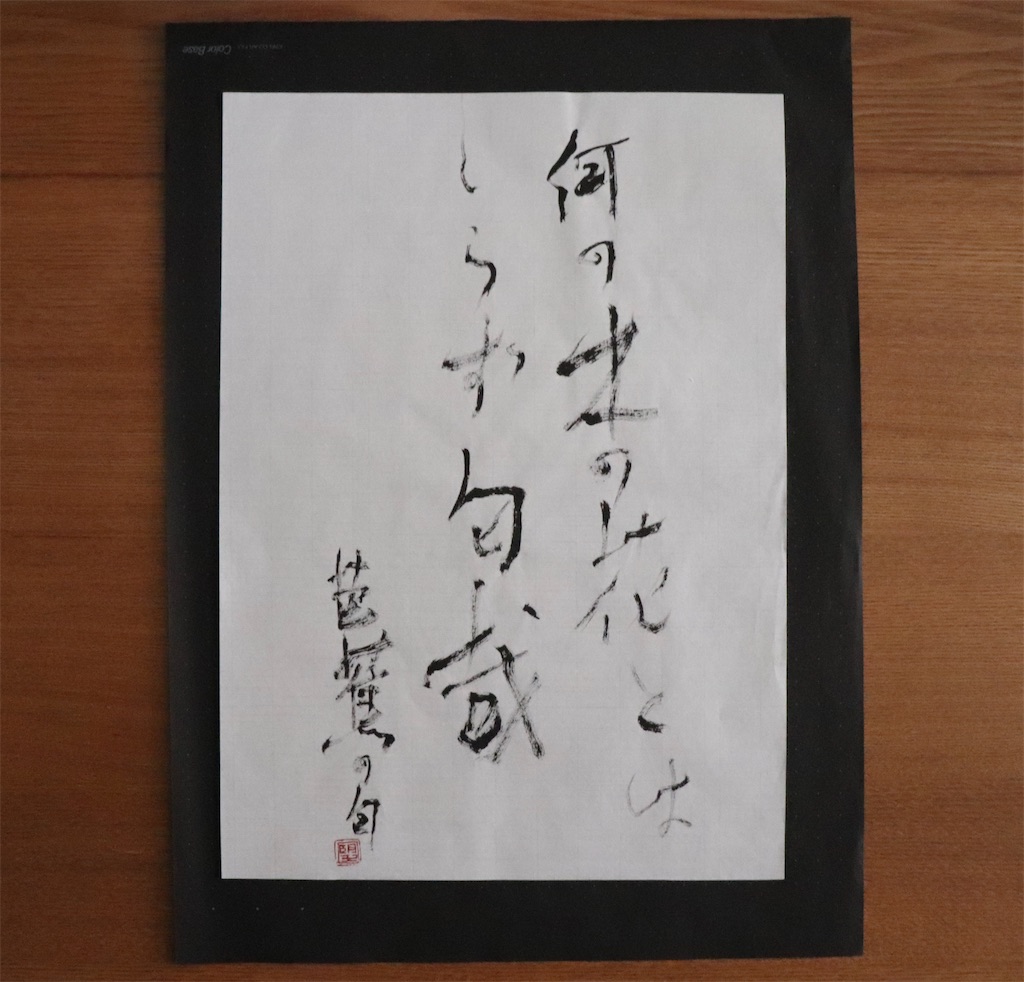 何の木の花とは
しらず匂哉
芭蕉の句
Color Base